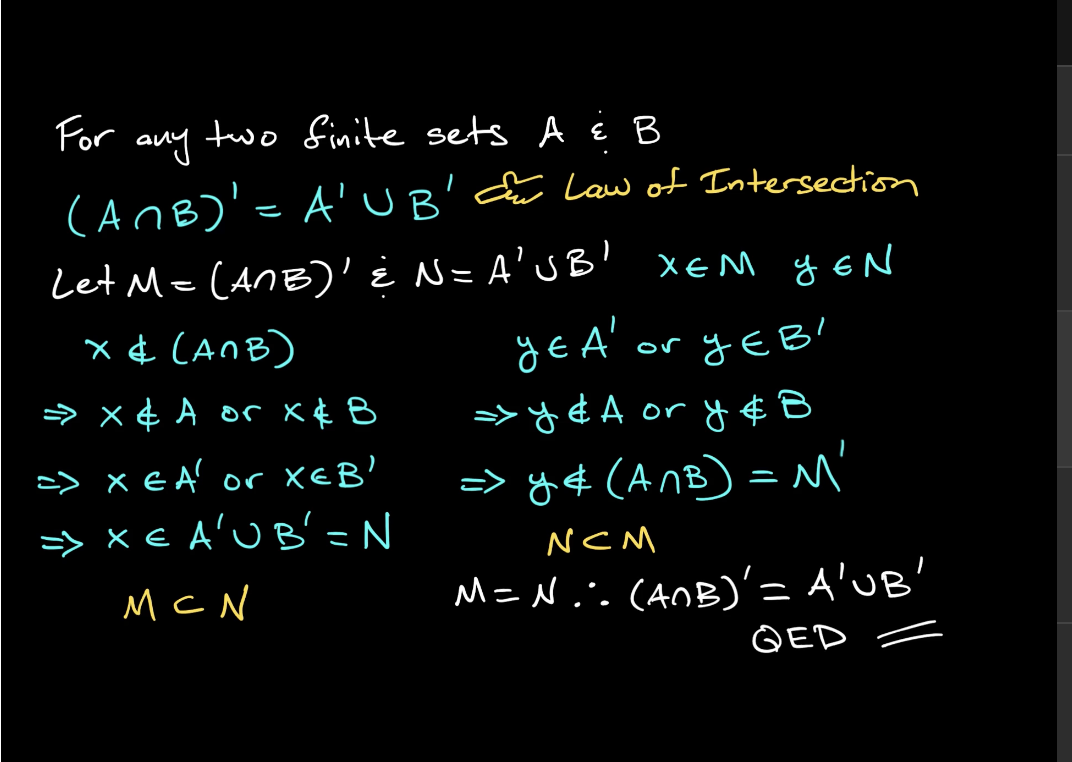 For any two finite sets A & B
(A∩B)' = A' ∪ B' Law of Intersection
Let M = (A∩B)' & N = A' ∪ B' x ∈ M y ∈ N
x ∉ (A∩B)
⇒ x ∉ A or x ∉ B
⇒ x ∈ A' or x ∈ B'
⇒ x ∈ A' ∪ B' = N
M ⊂ N
y ∈ A' or y ∈ B'
⇒ y ∉ A or y ∉ B
⇒ y ∉ (A∩B) = M'
N ⊂ M
M = N ∴ (A∩B)' = A' ∪ B'
QED